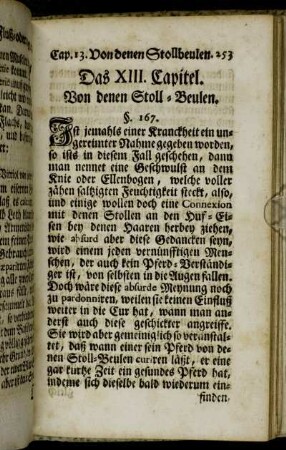 Cap. 13. Von denen Stollbeulen. 253
Das XIII. Capitel.
Von denen Stoll-Beulen.
§. 167.
Ist jemahls einer Kranckheit ein un-
gereimter Nahme gegeben worden,
so ists in diesem Fall geschehen, dann
man nennet eine Geschwulst an dem
Knie oder Ellenbogen, welche voller
zähen saltzigten Feuchtigkeit steckt, also,
und einige wollen doch eine Connexion
mit denen Stollen an den Huf-Ei-
sen bey denen Haaren herbey ziehen,
wie absurd aber diese Gedancken seyn,
wird einem jeden vernünfftigen Men-
schen, der auch kein Pferd-Verständi-
ger ist, von selbsten in die Augen fallen.
Doch wäre diese absurde Meynung noch
zu pardonniren, weilen sie keinen Einfluß
weiter in die Cur hat, wann man an-
derst auch diese geschickter angreiffe.
Sie wird aber gemeiniglich so veranstal-
tet, daß wann einer sein Pferd von de-
nen Stoll-Beulen curiren läßt, er eine
gar kurtze Zeit ein gesundes Pferd hat,
indeme sich dieselbe bald wiederum ein-
finden.